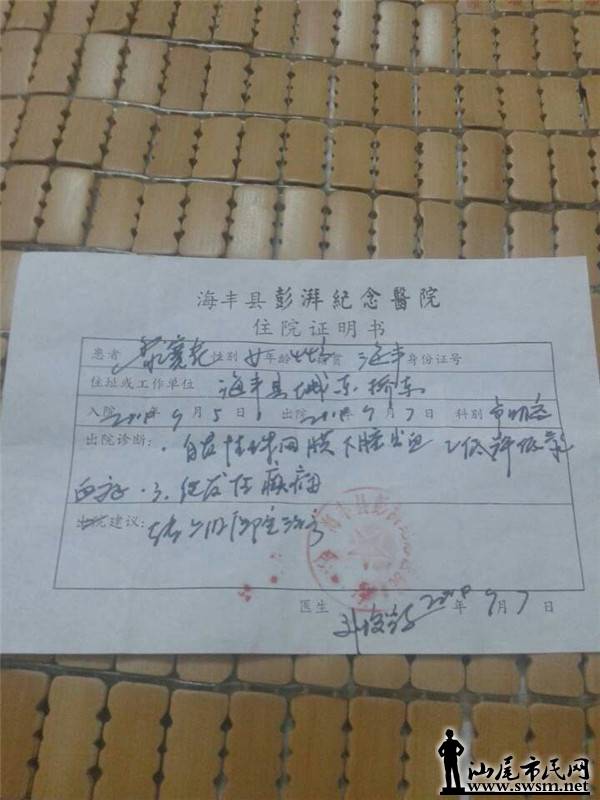 海丰县彭湃紀念醫院
住院证明书
患者 性别 女 年龄 籍贯 海丰 身份证号
住址或工作单位 海丰县城东 桥东
入院 2018 9 月 5 日 出院 2018 9 月 7 日 科别
出院诊断： 1. 自发性蛛网膜下腔出血 2. 低钾低氯
血症 3. 继发性癫痫
出院建议： 转上级医院治疗
医生 2018 年 9 月 7 日
汕尾市民网
www.swsm.net